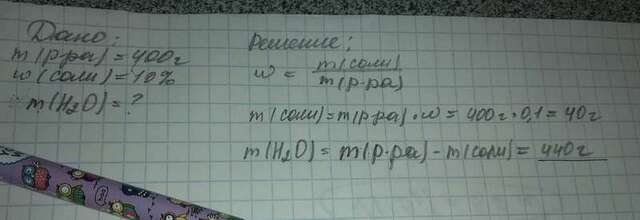 Дано:
m(р-ра) = 400г
w(соли) = 10%
m(H₂O) = ?
Решение:
w = m(соли) / m(р-ра)
m(соли) = m(р-ра) · w = 400г · 0,1 = 40г
m(H₂O) = m(р-ра) - m(соли) = 440г